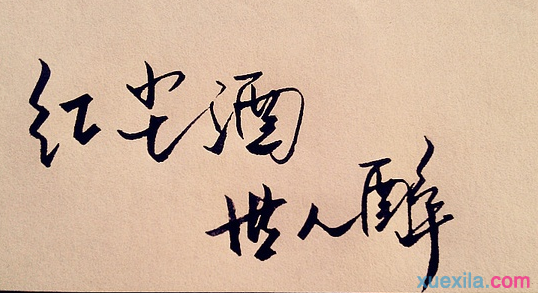 红尘酒
世人醉
xuexila.com